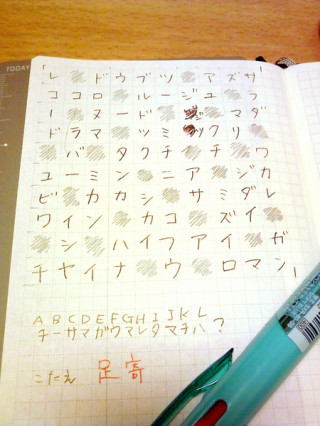 TODAY
レ ドウブツ アズサ
ココロ ルージュ ラ
ー ヌード ジ マダ
ドラマ ツミックリ
バ タクチ チ ワ
ユーミン ニア ジカ
ビ カカシ サミダレ
ワイン カコ ズイ
シ ハイファイ ガ
チャイナ ウ ロマン
A B C D E F G H I J K L
チーサマガウマレタマチハ?
こたえ 足寄